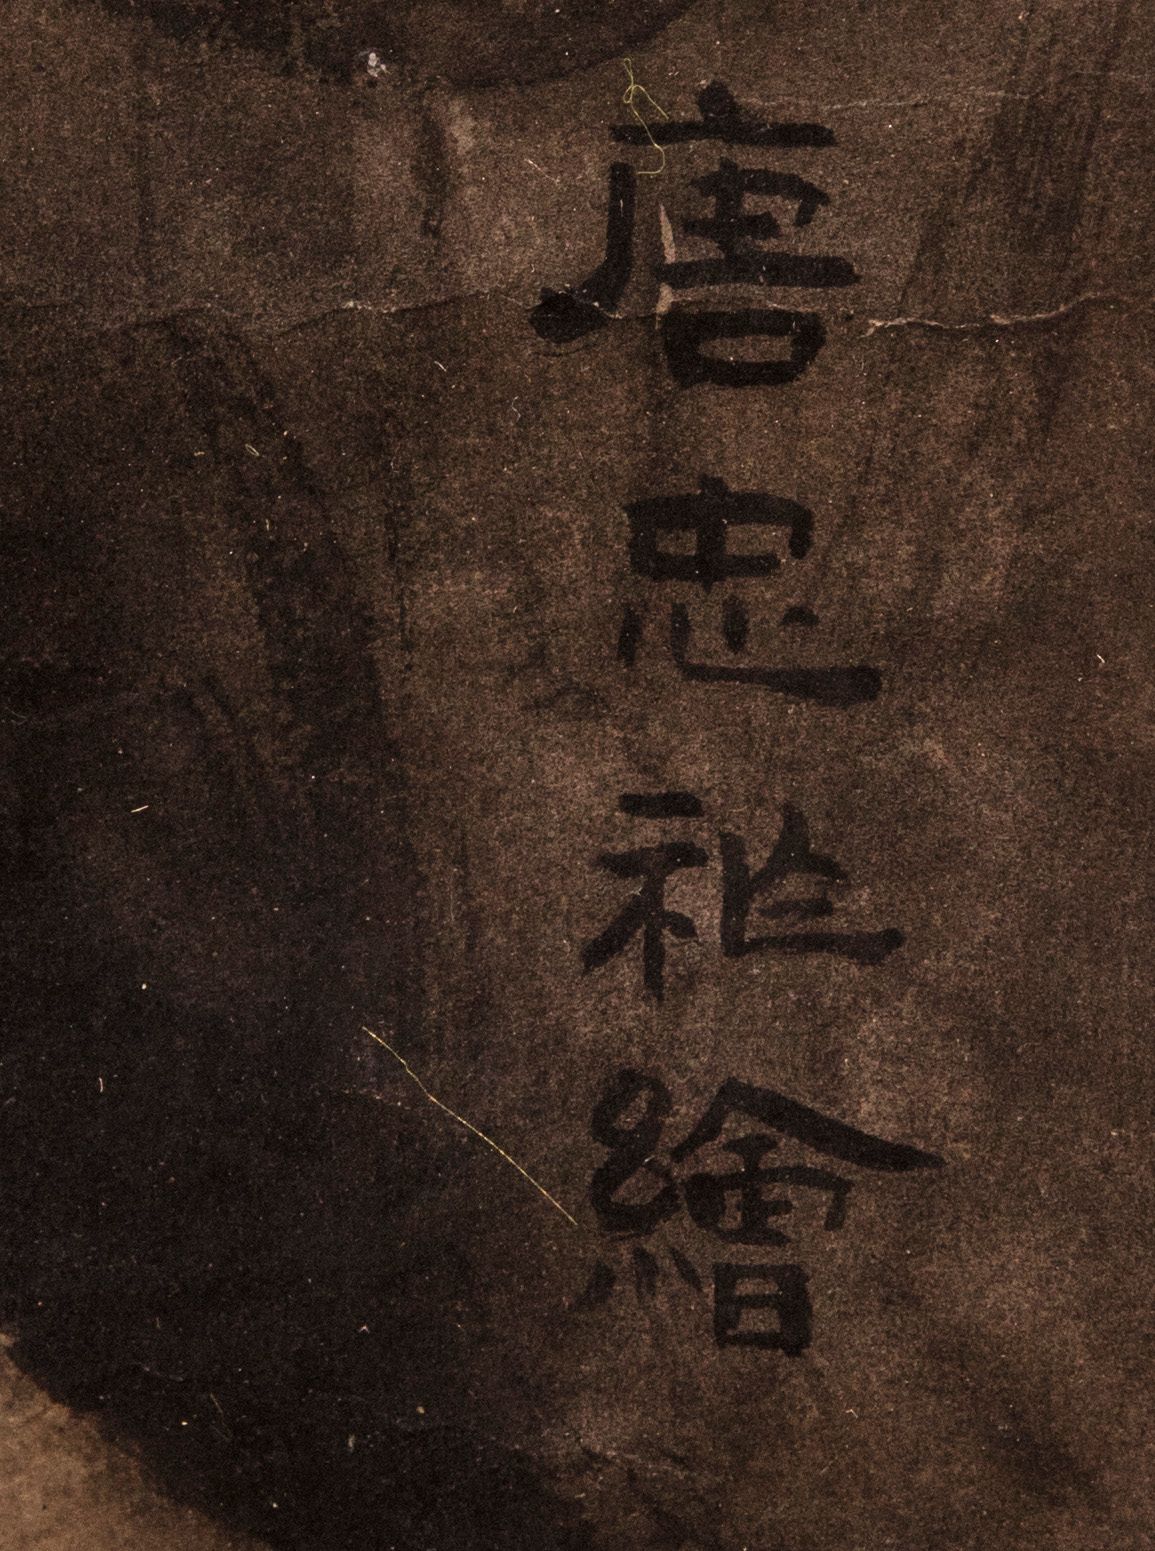 唐忠祚繪